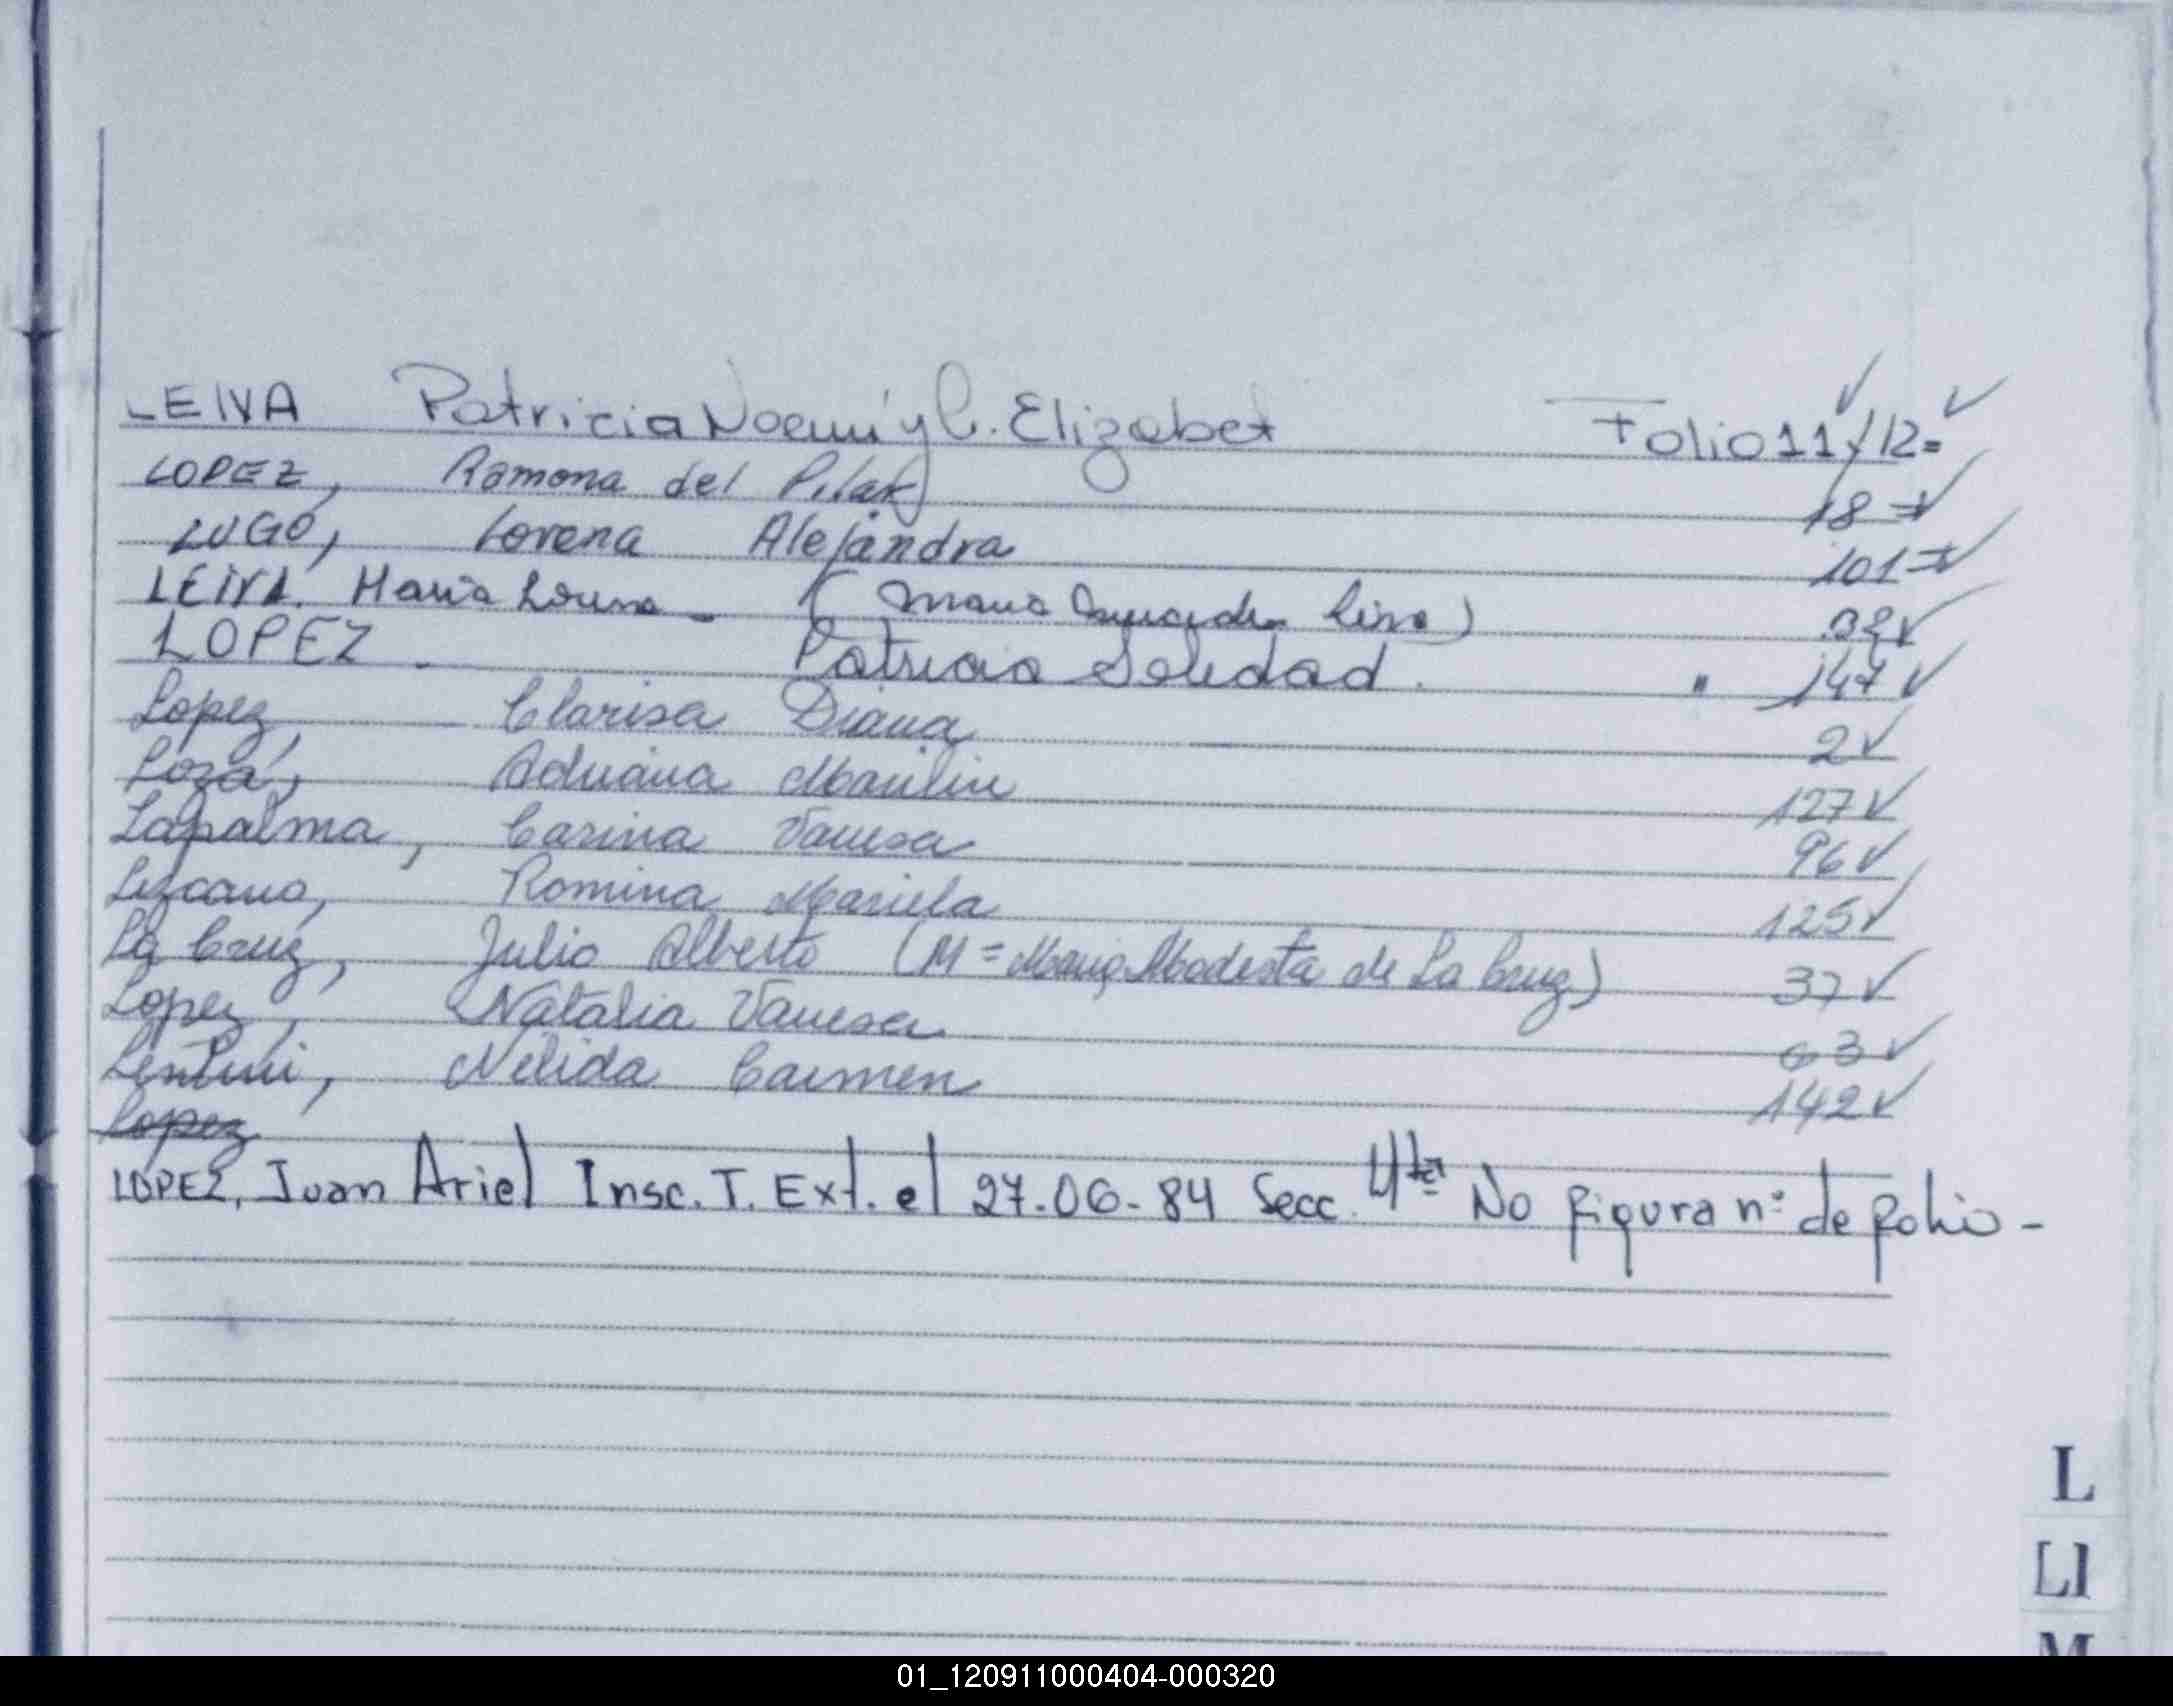 LEIVA Patricia Noemí y C. Elizabet Folio 11 ✓ / 12= ✓
LOPEZ, Ramona del Pilar 18= ✓
LUGO, Lorena Alejandra 101= ✓
LEIVA. Maria Lorena - ( Maria Lina ) 32 ✓
LOPEZ - Patricia Soledad. " 147 ✓
Lopez, Clarisa Diana 2 ✓
Loza, Adriana Marilin 127 ✓
Lapalma, Carina Vanesa 96 ✓
Lezcano, Romina Mariela 125 ✓
La Cruz, Julio Alberto (M = Maria Modesta de La Cruz) 37 ✓
Lopez, Natalia Vanesa 63 ✓
Lentini, Nélida Carmen 142 ✓
Lopez
LOPEZ, Juan Ariel Insc. T. Ext. el 27.06-84 Secc. 4ta No figura n° de folio -
L
LL
M
01_120911000404-000320